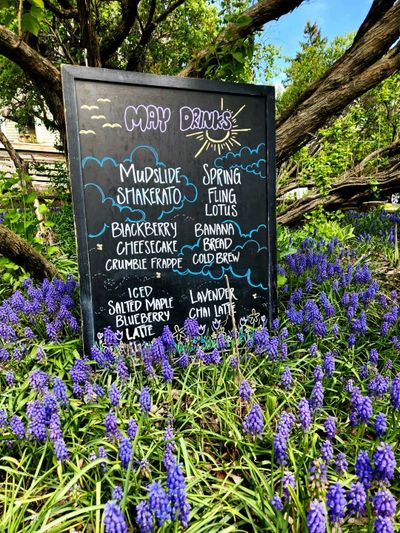 MAY DRINKS
MUDSLIDE
SHAKERATO
BLACKBERRY
CHEESECAKE
CRUMBLE FRAPPE
ICED
SALTED MAPLE
BLUEBERRY
LATTE
SPRING
FLING
LOTUS
BANANA
BREAD
COLD BREW
LAVENDER
CHAI LATTE